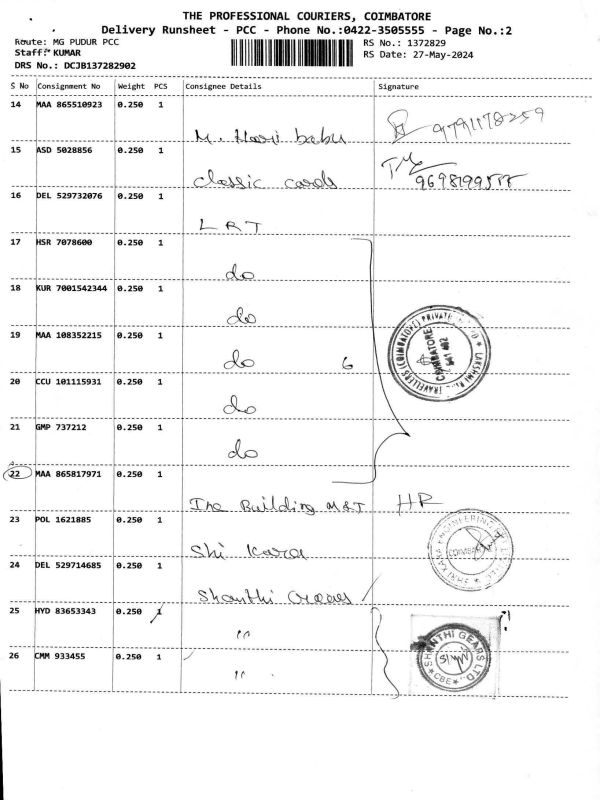 THE PROFESSIONAL COURIERS, COIMBATORE
Delivery Runsheet - PCC - Phone No.:0422-3505555 - Page No.:2
Route: MG PUDUR PCC
Staff:* KUMAR
DRS No.: DCJB137282902
RS No.: 1372829
RS Date: 27-May-2024
S No Consignment No Weight PCS Consignee Details Signature
14 MAA 865510923 0.250 1
M. Hari babu 9791178259
15 ASD 5028856 0.250 1
classic cards
16 DEL 529732076 0.250 1
L R T
17 HSR 7078600 0.250 1
do
18 KUR 7001542344 0.250 1
do
19 MAA 108352215 0.250 1
do 6
20 CCU 101115931 0.250 1
do
21 GMP 737212 0.250 1
do
22 MAA 865817971 0.250 1
The Building M&T HR
23 POL 1621885 0.250 1
Shi Kara
24 DEL 529714685 0.250 1
Shanthi Gears
25 HYD 83653343 0.250 1
"
26 CMM 933455 0.250 1
"
TRAVELLERS (COIMBATORE) PRIVATE
COIMBATORE
641 402
SHANTHI GEARS LTD.
CBE